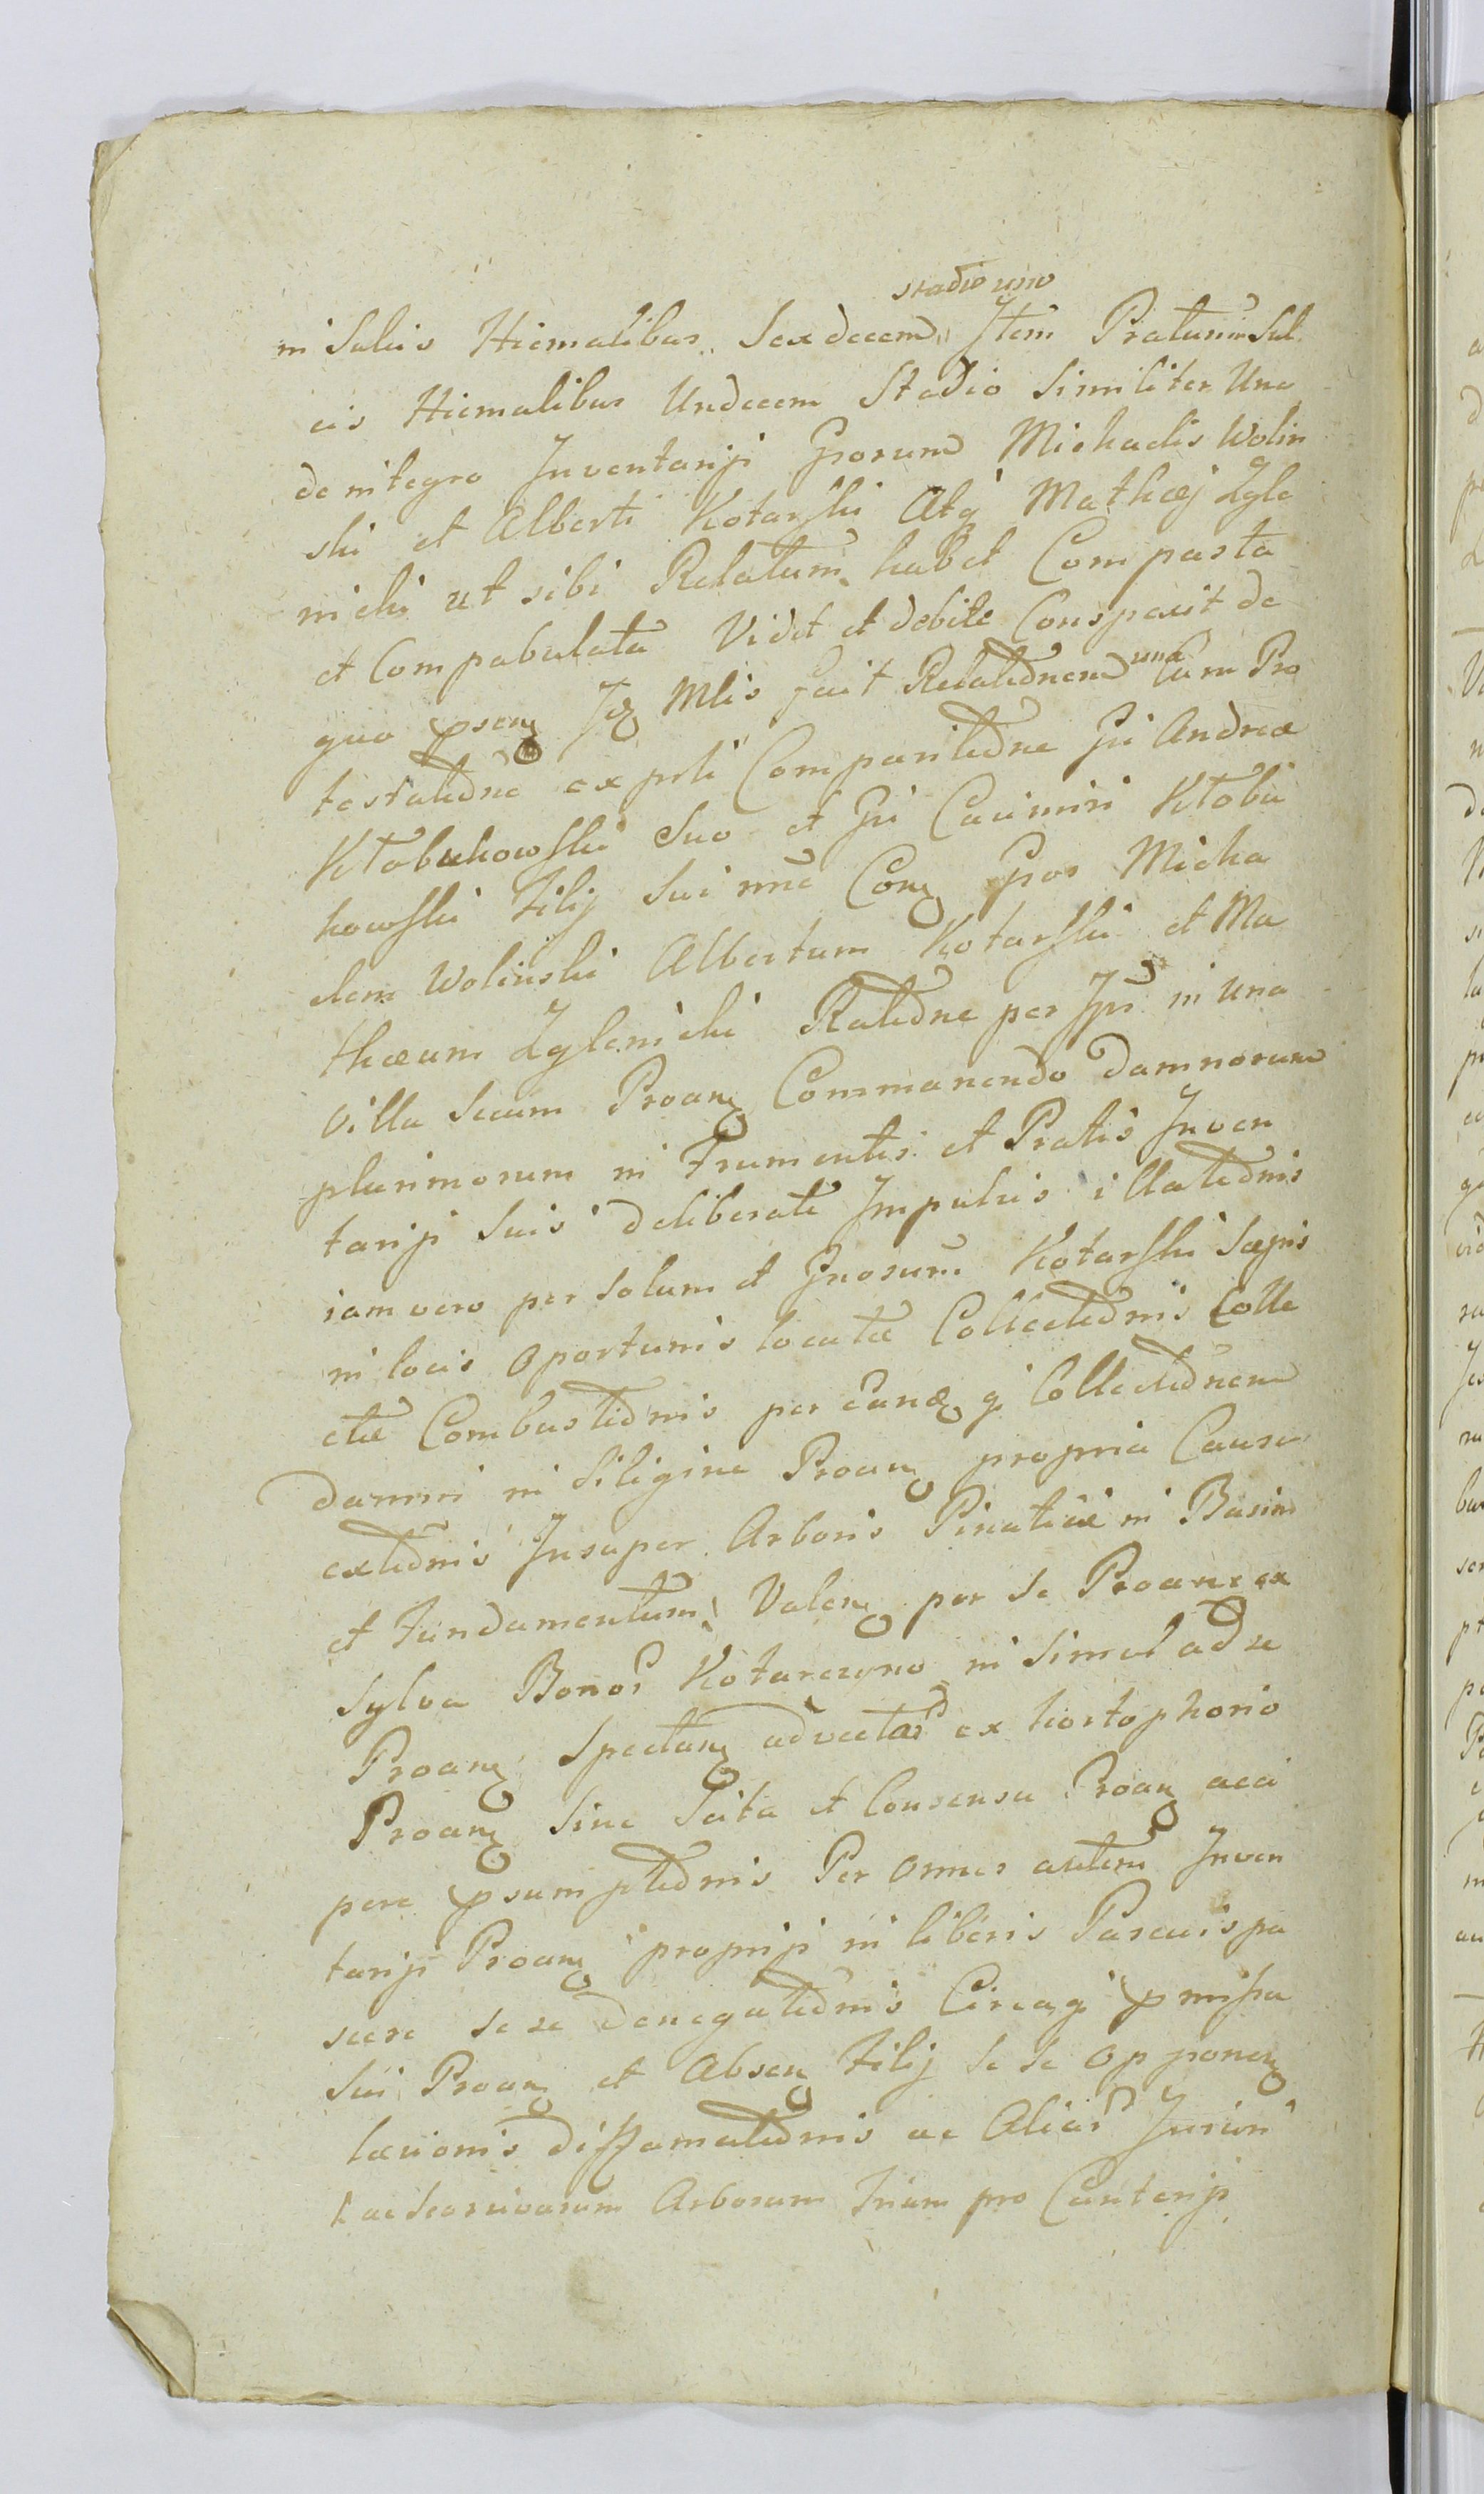 stadio uno
in Sulcis Hiemalibus Sexdecem Item Pratum in Sul
cis Hiemalibus Undecem Stadio Similiter Uno
de integro Inventarij Gnorum Michaelis Wolin
ski et Alberti Kotarski Atq Mathæj Zgle
nicki ut sibi Relatum habet Compasta
et Compabulata Vidit et debite Conspexit de
quo pseny Idz Mlis facit Relatõnem una cum Pro
testatõne ex prti Comparitõne Gñi Andreæ
Kłobukowski Suo et Gñi Casimiri Kłobu
kowski Filij Sui nñe Cony Gnos Micha
elem Wolinski Albertum Kotarski et Ma
thæum Zglenicki Ratõne per Ipõs in una
Villa Secum Proany Commanendo Damnorum
plurimorum in Frumentis et Pratis Inven
tarijs Suis deliberate Impulsis illatõnis
iam vero per solum et Gnosum Kotarski Sæpis
in locis oportunis locatæ Collectõnis Colle
ctæ Combustõnis per eandz q Collectõnem
damni in Siligine Proany propria Causa
extõnis Insuper Arboris Pinaticæ in Basim
et Fundamentum Valeny per Se Proane ex
Sylva Bonor Kotarczyno in Simul ad se
Proany Spectany advectar ex hortophorio
Proany Sine Scitu et Consensu Proany acci
pere psumptõnis Per omnes autem Inven
tarij Proany proprij in liberis Pascuis pa
scere sese denegatõnis Circaq pmissa
Sui Proany et Absen Filij Se Se opponeny
læsionis diffamatõnis ac Aliar Iniur
ac Arborum Trium pro Canterij